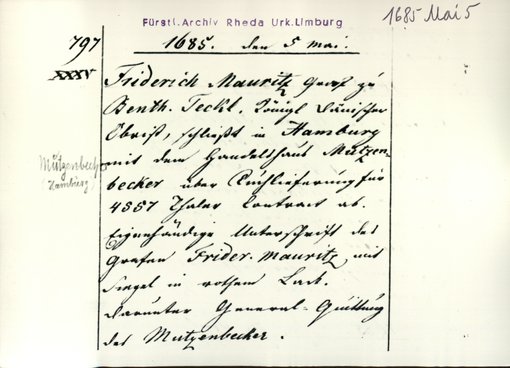 Fürstl. Archiv Rheda Urk. Limburg
1685 Mai 5
797
1685. den 5 Mai.
XXXV
Friderich Mauritz Graf zu
Benth. Teckl. Königl Dänischer
Obrist, schließt in Hamburg
mit dem Handelshaus Mutzen-
Mutzenbecher
Hamburg
becker über Tuchlieferung für
4557 Thaler Contract ab.
Eigenhändige Unterschrift des
Grafen Frider. Mauritz, mit
Siegel in rothem Lack.
Darunter General-Quittung
des Mutzenbecker.